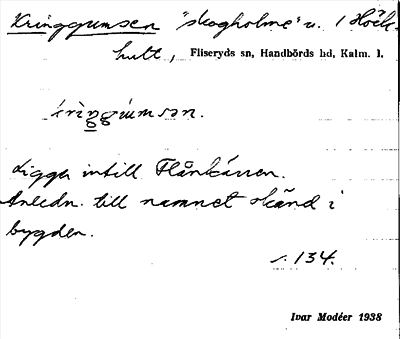 Kringgumsen "skogholme" v. 1 Höck-
hult, Fliseryds sn, Handbörds hd, Kalm. l.
kriŋgúmsən.
Ligger intill Flånkärren.
Anledn. till namnet okänd i
bygden.
s. 134.
Ivar Modéer 1938